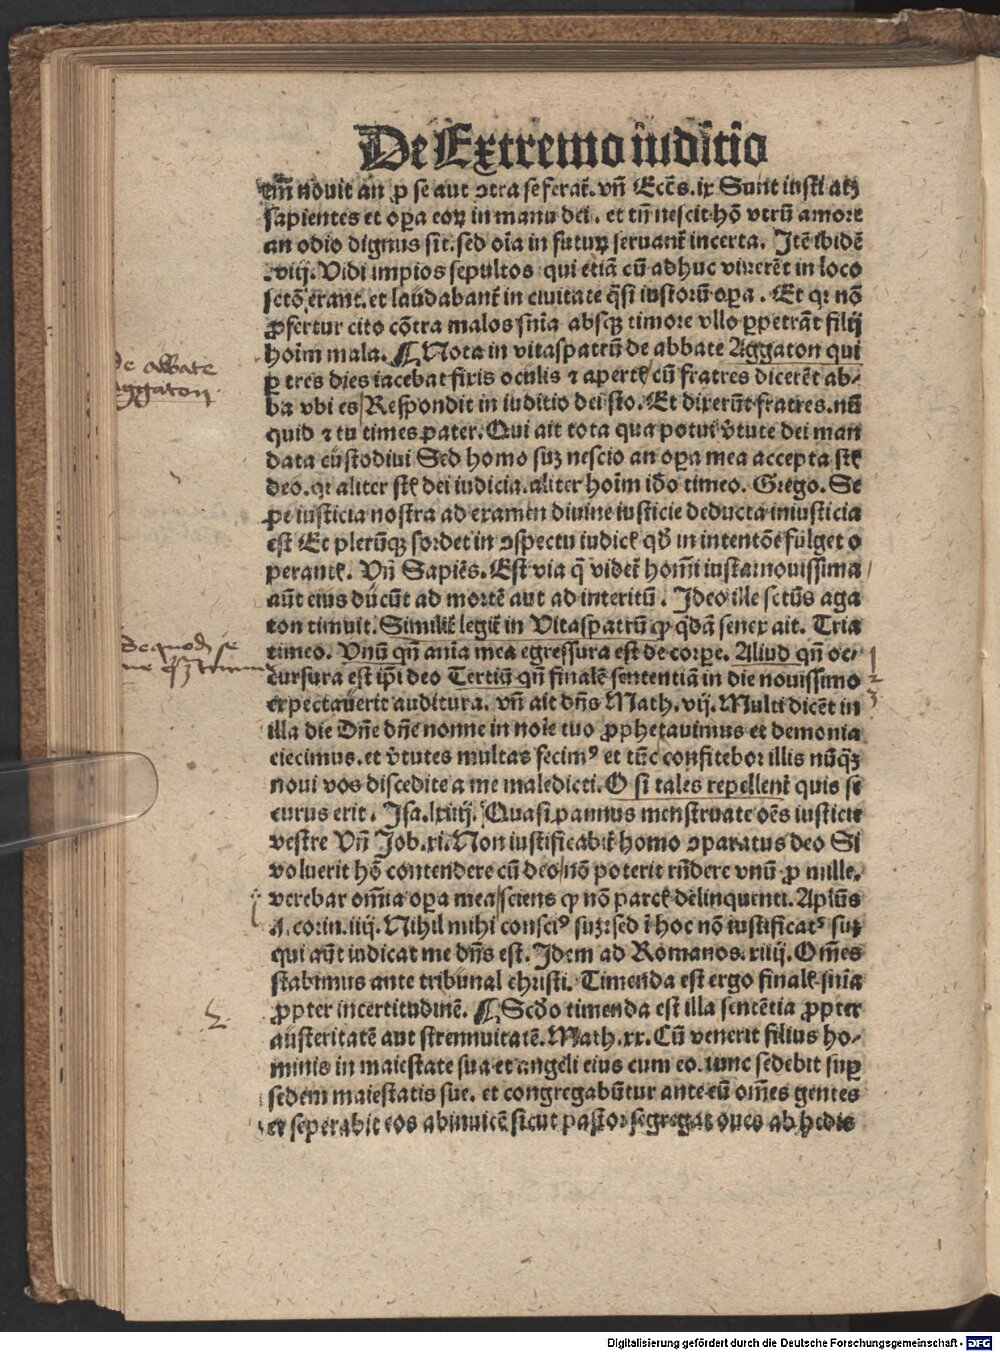 De Extremo iuditio
em̄ nouit an ꝑ se aut ↄtra se ferat̄. vn̄ Eccēs. ix Sunt iusti atqꝫ
sapientes et oꝑa eoꝝ in manu dei . et tn̄ nescit hō vtrū amore
an odio dignus sit. sed oīa in futuꝝ seruant̄ incerta. Itē ibidē
.viij. Vidi impios sepultos qui etiā cū adhuc viuerēt in loco
sctō erant. et laudabant̄ in ciuitate q̄si iustorū oꝑa . Et qꝛ nō
ꝓfertur cito cōtra malos sn̄ia absqꝫ timore vllo ꝑpetrāt filij
hoīm mala. ¶ Nota in vitaspatrū de abbate Aggaton qui
ꝑ tres dies iacebat fixis oculis ⁊ apertꝭ cū fratres dicerēt ab-
ba vbi es Respondit in iuditio dei sto. Et dixerūt fratres. nū
quid ⁊ tu times pater. Qui ait tota qua potui v̓tute dei man
data custodiui Sed homo suꝫ nescio an oꝑa mea accepta sꝭ
deo. qꝛ aliter sꝭ dei iudicia. aliter hoīm iō timeo. Grego. Se
pe iusticia nostra ad examen diuine iusticie deducta iniusticia
est Et plerūqꝫ sordet in ↄspectu iudicꝭ qd̓ in intentōe fulget o
perantꝭ. Vn̄ Sapiēs. Est via q̄ videt̄ homī iusta nouissima
aūt eius ducūt ad mortē aut ad interitū . Ideo ille sctūs aga
ton timuit. Similit̄ legit̄ in Vitaspatrū ꝙ qdā senex ait. Tria
timeo. Vnū qn̄ anīa mea egressura est de corꝑe. Aliud qn̄ oc-
cursura est ip̄i deo Tertiū qn̄ finalē sententiā in die nouissimo
expectauerit auditura. vn̄ ait dn̄s Math. vij. Multi dicēt in
illa die Dn̄e dn̄e nonne in noīe tuo ꝓphetauimus et demonia
eiecimus. et v̓tutes multas fecimꝰ et tūc confitebor illis nūqꝫ
noui vos discedite a me maledicti. O si tales repellent̄ quis se
curus erit . Isa. lxiiij. Quasi pannus menstruate oēs iusticie
vestre Vn̄ Job. xi. Non iustificabit̄ homo ↄparatus deo Si
voluerit hō contendere cū deo nō poterit rn̄dere vnū ꝓ mille.
verebar om̄ia oꝑa mea sciens ꝙ nō parcꝭ delinquenti. Aplūs
.i. corin. iiij. Nihil mihi consciꝰ suꝫ: sed ī hoc nō iustificatꝰ suꝫ
qui aūt iudicat me dn̄s est. Idem ad Romanos. xiiij. Om̄es
stabimus ante tribunal christi. Timenda est ergo finalꝭ sn̄ia
ꝓpter incertitudinē. ¶ Sedo timenda est illa sentētia ꝓpter
austeritatē aut strennuitatē. Math. xx. Cū venerit filius ho-
minis in maiestate sua et angeli eius cum eo. tunc sedebit suꝑ
sedem maiestatis sue. et congregabūtur ante eū om̄es gentes
et seperabit eos abinuicē sicut pastor segregat oues ab hedis
de abbate
aggaton
1
2
3
Digitalisierung gefördert durch die Deutsche Forschungsgemeinschaft - DFG